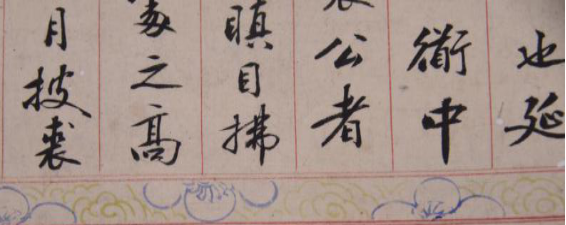 也延
衜中
公者
瞋目拂
之高
月披裘